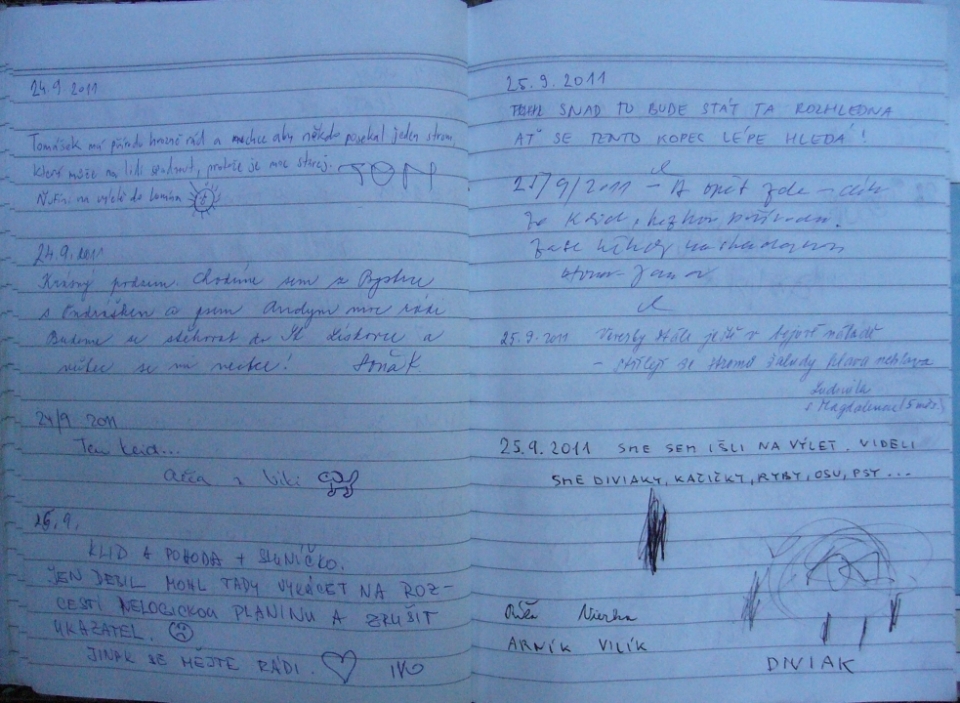 24.9.2011
Tomášek má přírodu hrozně rád a nechce aby někdo pojekal jeden strom,
který může na lidi spadnout, protože je moc starej.
TOM
24.9.2011
Krásný podzim. Chodíme sem z Bystrce
s Ondráškem a psem Andym moc rádi
Budeme se stěhovat do St. Lískovce a
vůbec se mi nechce! Soňa K
24/9 2011
Ten klid...
a Viki
25.9.
KLID A POHODA + SLUNÍČKO.
JEN DEBIL MOHL TADY VYKÁCET NA ROZ-
CESTÍ NELOGICKOU PLANINU A ZRUŠIT
UKAZATEL.
JINAK SE MĚJTE RÁDI. IVO
25.9.2011
SNAD TU BUDE STÁT TA ROZHLEDNA
AŤ SE TENTO KOPEC LÉPE HLEDÁ!
25/9/2011 – A opět zde – díky
za klid, hezkou přírodu.
Zase někdy nashledanou
25.9.2011 Veverky stále ještě v bojové náladě
– střílejí ze stromů žaludy hlava nehlava
Ludmila
s Magdalenou (5 měs.)
25.9.2011 SME SEM IŠLI NA VÝLET. VIDELI
SME DIVIAKY, KAČIČKY, RYBY, OSU, PSY...
Vierka
ARNÍK VILÍK
DIVIAK